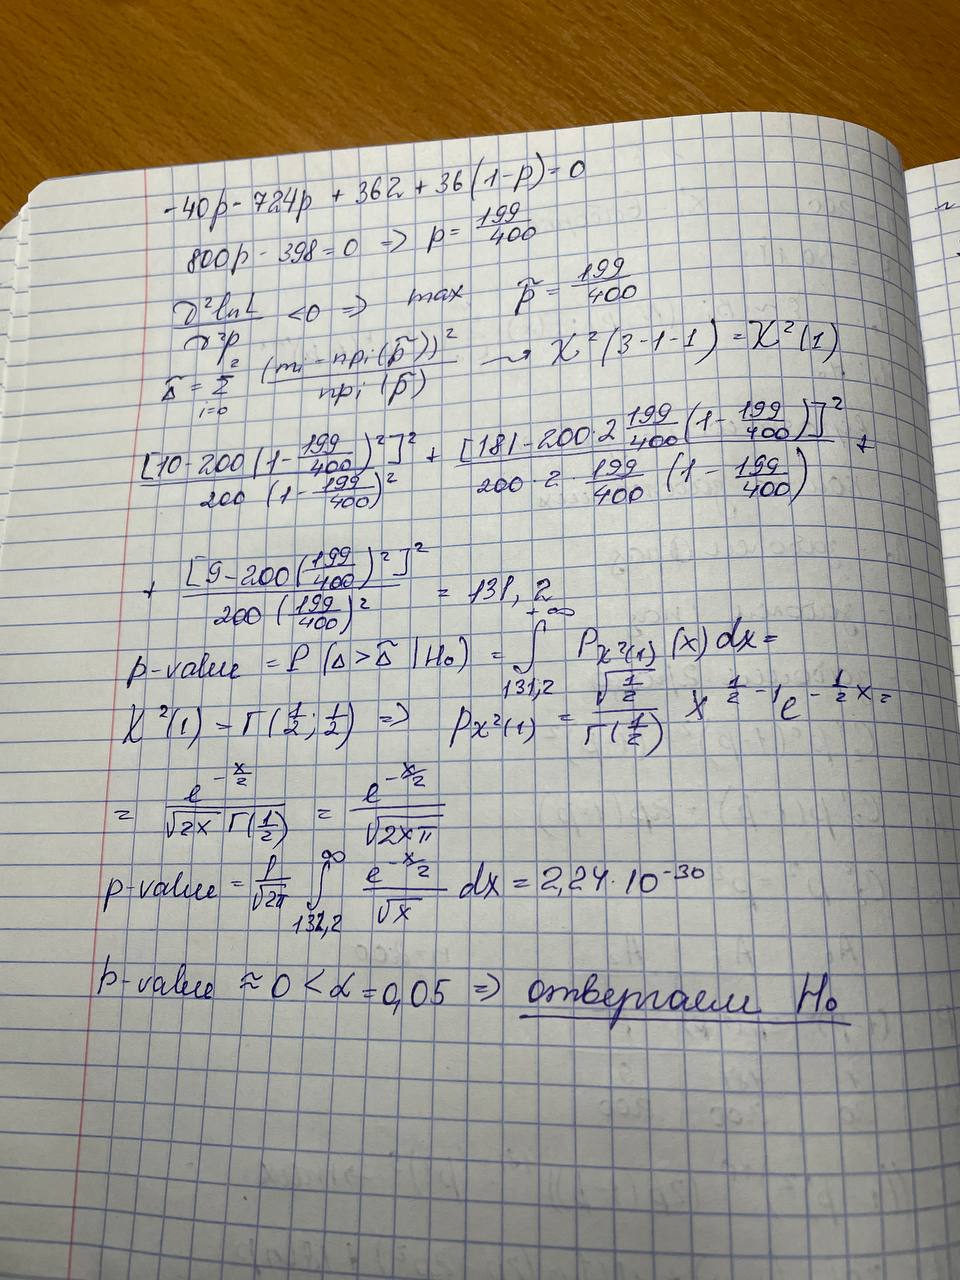 -40p - 724p + 362 + 36(1-p) = 0
800p - 398 = 0 => p = 199/400
∂²lnL/∂²p < 0 => max p̃ = 199/400
Δ̃ = Σ_{i=0}^{2} (m_i - np_i(p̃))²/np_i(p̃) ⇝ χ²(3-1-1) = χ²(1)
[10-200(1-199/400)²]²/200(1-199/400)² + [181-200·2 199/400(1-199/400)]²/200·2·199/400(1-199/400) +
+ [9-200(199/400)²]²/200(199/400)² = 131,2
p-value = P(Δ>Δ̃|H₀) = ∫_{131,2}^{+∞} P_{χ²(1)}(x)dx =
χ²(1) = Γ(1/2; 1/2) => p_{χ²(1)} = √(1/2)/Γ(1/2) x^{1/2 - 1} e^{-1/2 x} =
= e^{-x/2}/√2x Γ(1/2) = e^{-x/2}/√2xπ
p-value = 1/√2π ∫_{131,2}^{∞} e^{-x/2}/√x dx = 2,24·10^{-30}
p-value ≈ 0 < α = 0,05 => отвергаем H₀